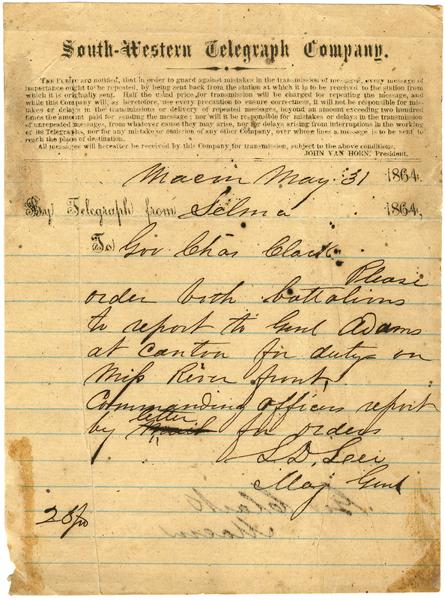 South-Western Telegraph Company.
The Public are notified, that in order to guard against mistakes in the transmission of messages, every message of
importance ought to be repeated, by being sent back from the station at which it is to be received to the station from
which it is originally sent. Half the usual price for transmission will be charged for repeating the message, and
while this Company will, as heretofore, use every precaution to ensure correctness, it will not be responsible for mis-
takes or delays in the transmission or delivery of repeated messages, beyond an amount exceeding two hundred
times the amount paid for sending the message; nor will it be responsible for mistakes or delays in the transmission
of unrepeated messages, from whatever cause they may arise, nor for delays arising from interruptions in the working
of its Telegraphs, nor for any mistake or omission of any other Company, over whose lines a message is to be sent to
reach the place of destination.
All messages will hereafter be received by this Company for transmission, subject to the above conditions.
JOHN VAN HORN, President.
Macon May 31 1864.
By Telegraph from Selma 1864.
To Gov Chas Clark
Please
order both battalions
to report to Genl Adams
at Canton for duty on
Miss River front,
Commanding officers report
letter
by mail for orders
S.D. Lee
Maj Genl